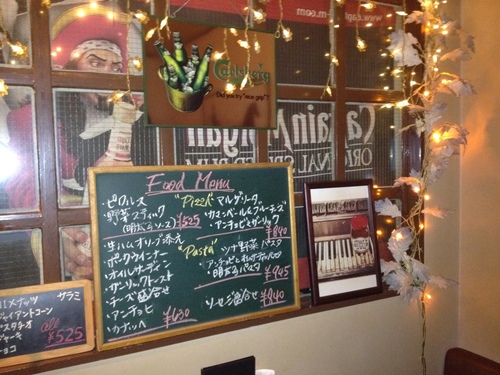 Carlsberg
Did you try "our grip"?
Captain Morgan
ORIGINAL SPICED RUM
Food Menu
・ピクルス
・野菜スティック
(明太ソース) ¥525
・生ハムオリーブ添え
・ポークウインナー
・オイルサーディン
・ガーリックトースト
・チーズ盛合せ
・アンチョビ
・カナッペ
¥630
"Pizza" マルゲリータ
・カマンベール&ブルーチーズ
・アンチョビとガーリック
¥840
"Pasta" ツナ野菜パスタ
・明太子パスタ
¥945
・ソーセージ盛合せ ¥940
サラミ
ジャイアントコーン
ピスタチオ
ジャーキー
チョコ
all ¥525